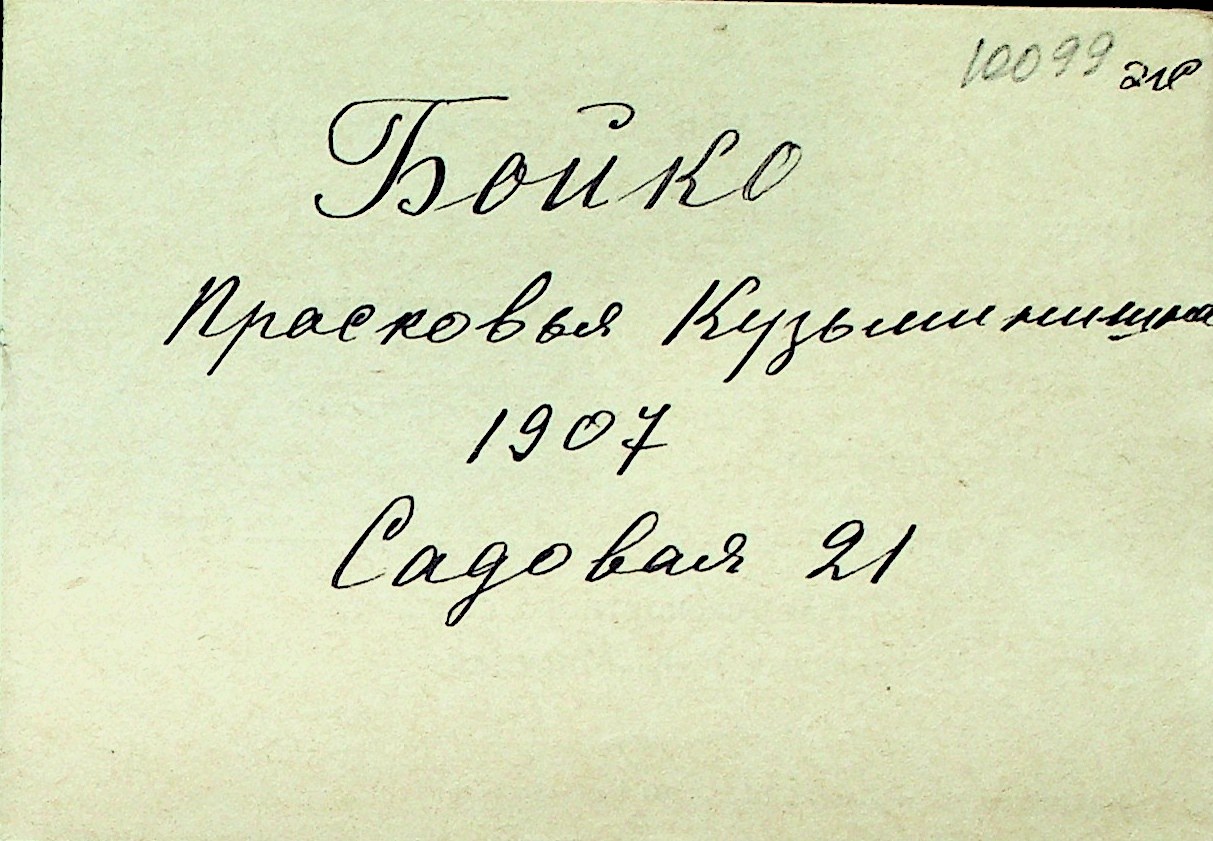 10099
Бойко
Прасковья Кузьминична
1907
Садовая 21